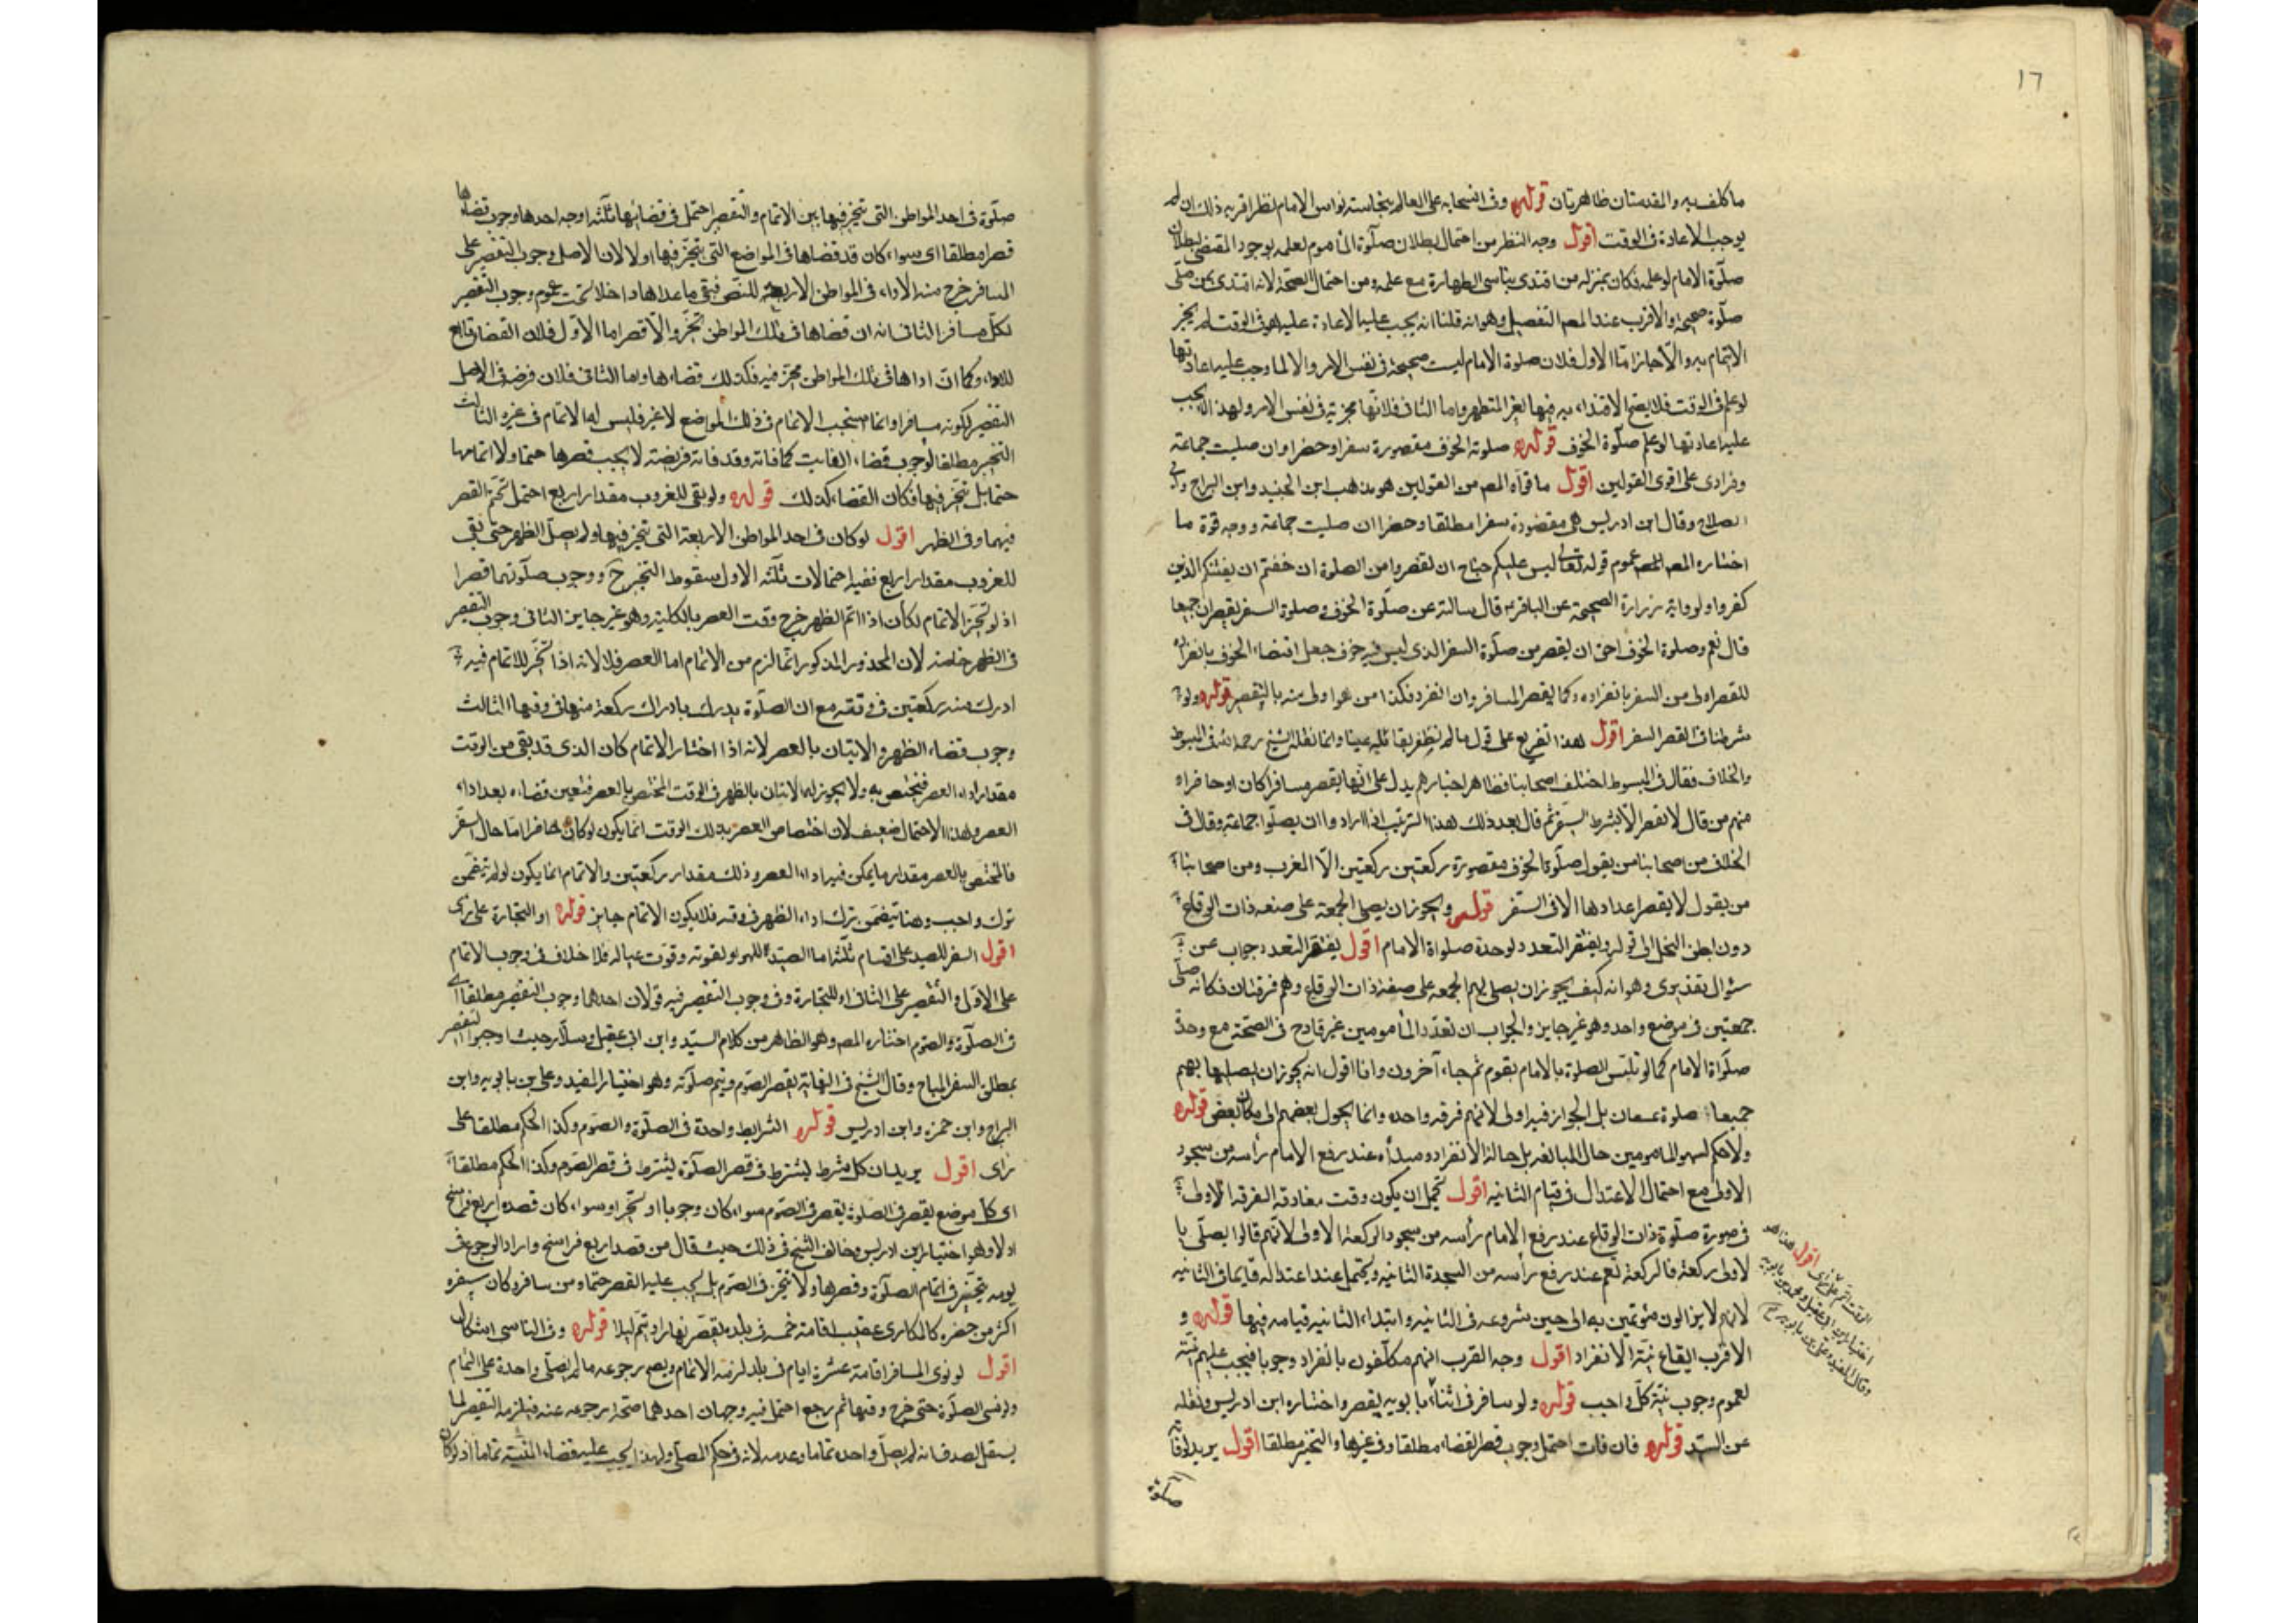 ١٦
ما كلف به والمقدمتان ظاهرتان قوله وفى انسحابه على العالم بنجاسة ثوب الامام نظر اقربه ذلك ان لم
يوجب الاعادة فى الوقت اقول وجه النظر من احتمال بطلان صلوة المأموم لعلمه بوجود المقتضى لبطلان
صلوة الامام لو علمه فكان بمنزلة من اقتدى بناسى الطهارة مع علمه ومن احتمال الصحة لانه اقتدى بمن صلى
صلوة صحيحة والاقرب عند المصـ التفصيل وهو انه قلنا انه يجب عليه الاعادة عليه فى الوقت لم يجز
الايتمام به والا جاز اما الاول فلان صلوة الامام ليست صحيحة فى نفس الامر والا لما وجب عليه اعادتها
لو علم فى الوقت فلا يصح الاقتداء به فيها لغير المتطهر واما الثانى فلانها مجزية فى نفس الامر ولهذا لا يجب
عليه اعادتها لو علم صلوة الخوف قوله صلوة الخوف مقصورة سفرا وحضرا وان صليت جماعة
وفرادى على اقوى القولين اقول ما قواه المصـ من القولين هو مذهب ابن الجنيد وابن البراج وابى
الصلاح وقال ابن ادريس هى مقصورة سفرا مطلقا وحضرا ان صليت جماعة ووجه قوة ما
اختاره المصـ عموم قوله تعالى ليس عليكم جناح ان تقصروا من الصلوة ان خفتم ان يفتنكم الذين
كفروا ولرواية زرارة الصحيحة عن الباقر قال سالته عن صلوة الخوف وصلوة السفر يقصران جميعا
قال نعم وصلوة الخوف احق ان يقصر من صلوة السفر الذى ليس فيه خوف جعل اقتضاء الخوف بانفراده
للقصر اولى من السفر بانفراده وكما يقصر المسافر وان انفرد فكذا من هو اولى منه بالتقصير قوله ولو
شرطنا فى القصر السفر اقول هذا تفريع على قول ما لم نظفر بقائله عينا وانما نقله الشيخ رحمه الله فى المبسوط
والخلاف فقال فى المبسوط اختلف اصحابنا فظاهر اخبارهم يدل على انها يقصر مسافرا كان او حاضرا
منهم من قال لا يقصر الا بشرط السفر ثم قال بعد ذلك هذا الترتيب اذا ارادوا ان يصلوا جماعة وقال فى
الخلاف من اصحابنا من يقول صلوة الخوف مقصورة ركعتين ركعتين الا المغرب ومن اصحابنا
من يقول لا يقصر اعدادها الا فى السفر قوله ويجوز ان يصلى الجمعة على صفة ذات الرقاع
دون بطن النخل الى قوله ويغتفر التعدد لوحدة صلواة الامام اقول يغتفر التعدد جواب عن
سؤال تقديرى وهو انه كيف يجوز ان يصلى بهم الجمعة على صفة ذات الرقاع وهم فرقتان فكانه صلى
جمعتين فى موضع واحد وهو غير جايز والجواب ان تعدد المأمومين غير قادح فى الصحة مع وحدة
صلواة الامام كما لو تلبس الصلوة بالامام بقوم ثم جاء آخرون وانا اقول انه يجوز ان يصليها بهم
جميعا صلوة عسفان بل الجواز فيه اولى لانهم فرقة واحدة وانما يحول بعضهم الى مكان بعض قوله
ولا حكم لسهو المامومين حال المبالغه بل حالة الانفراد ومبدأه عند رفع الامام رأسه من سجود
الاولى مع احتمال الاعتدال فى قيام الثانيه اقول يحتمل ان يكون وقت مفارقة الفرقة الاولى
فى صورة صلوة ذات الرقاع عند رفع الامام رأسه من سجود الركعة الاولى لانهم قالوا يصلى با
لاولى ركعة فالركعة تتم عند رفع رأسه من السجدة الثانيه ويحتمل عند اعتداله قايما فى الثانيه
لانهم لا يزالون مؤتمين به الى حين شروعه فى الثانيه وابتداء الثانيه قيامه فيها قوله و
الاقرب ايقاع نية الانفراد اقول وجه القرب انهم مكلفون بانفراد وجوبا فيجب عليهم النية
لعموم وجوب نية كل واجب قوله ولو سافر فى اثناء بابويه يقصر واختاره ابن ادريس ونقله
عن السيد قوله فان فات احتمل وجوب قصر القضاء مطلقا وفى غيرها والتخير مطلقا اقول يريد لو فاته
صلوة
الوقت اتم على راى اقول هنا هو
اختيار ابن ابى عقيل ومحمد بن بابويه
وقال المفيد وعلى بن بابويه
صلوة فى احد المواطن التى يتخير فيها بين الاتمام والتقصير احتمل فى قضائها ثلثة اوجه احدها وجوب قضاءها
قصرا مطلقا اى سواء كان قد قضاها فى المواضع التى يتخير فيها او لا لان الاصل وجوب التقصير على
المسافر خرج منه الاداء فى المواطن الاربعة للنص فبقى ما عداها داخلا تحت عموم وجوب التقصير
لكل مسافر الثانى انه ان قضاها فى تلك المواطن تخير والا قصر اما الاول فلان القضاء تابع
للاداء وكما ان اداها فى تلك المواطن مخير فيه فكذلك قضاءها واما الثانى فلان فرضه فى الاصل
التقصير لكونه مسافرا وانما يستحب الاتمام فى ذلك المواضع لا غير فليس له الاتمام فى غيره الثالث
التخير مطلقا لوجوب قضاء الفايت كما فاته وقد فاته فريضة لا يجب قصرها حتما ولا اتمامها
حتما بل تخير فيها فكان القضاء كذلك قوله ولو بقى للغروب مقدار اربع احتمل تحتم القصر
فيهما وفى الظهر اقول لو كان فى احد المواطن الاربعة التى تخير فيها ولم يصل الظهر حتى بقى
للغروب مقدار اربع ففيه احتمالات ثلثة الاول سقوط التخير ح ووجوب صلوتهما قصرا
اذ لو تخير الاتمام لكان اذا اتم الظهر خرج وقت العصر بالكلية وهو غير جايز الثانى وجوب التقصير
فى الظهر خاصة لان المحذور المذكور انما لزم من الاتمام اما العصر فلا لانه اذا تخير للاتمام فيه
ادرك منه ركعتين فى وقته مع ان الصلوة يدرك بادراك ركعة منها فى وقتها الثالث
وجوب قضاء الظهر والاتيان بالعصر لانه اذا اختار الاتمام كان الذى قد بقى من الوقت
مقدار اداء العصر فيختص به ولا يجوز له الاتيان بالظهر فى الوقت المختص بالعصر فتعين قضاءه بعد اداء
العصر وهذا الاحتمال ضعيف لان اختصاص العصر بذلك الوقت انما يكون لو كان حاضرا اما حال السفر
فالمختص بالعصر مقدار ما يمكن فيه اداء العصر وذلك مقدار ركعتين والاتمام انما يكون لو لم يتضمن
ترك واجب وهنا يتضمن ترك اداء الظهر فى وقته فلا يكون الاتمام جايز قوله او التجارة على راى
اقول السفر للصيد على اقسام ثلثة اما الصيد للهو او لقوته وقوت عياله فلا خلاف فى وجوب الاتمام
على الاول والتقصير على الثانى او للتجارة وفى وجوب التقصير فيه قولان احدهما وجوب التقصير مطلقا اى
فى الصلوة والصوم اختاره المصـ وهو الظاهر من كلام السيد وابن ابى عقيل وسلار حيث اوجبوا التقصير
بمطلق السفر المباح وقال الشيخ فى النهاية يقصر الصوم ويتم صلوته وهو اختيار المفيد وعلى بن بابويه وابن
البراج وابن حمزه وابن ادريس قوله الشرايط واحدة فى الصلوة والصوم وكذا الحكم مطلقا على
راى اقول يريد ان كل شرط يشترط فى قصر الصلوة يشترط فى قصر الصوم وكذا الحكم مطلقا
اى كل موضع يقصر فى الصلوة يقصر فى الصوم سواء كان وجوبا او تخيرا وسواء كان قصده اربع فراسخ
او لا وهو اختيار ابن ادريس وخالف الشيخ فى ذلك حيث قال من قصد اربع فراسخ واراد الرجوع فى
يومه يتخير فى اتمام الصلوة وقصرها ولا يتخير فى الصوم بل يجب عليه القصر حتما ومن سافر وكان سفره
اكثر من حضره كالمكارى عقيب اقامة خمسة فى بلده يقصر نهارا ويتم ليلا قوله وفى الناسى اشكال
اقول لو نوى المسافر اقامة عشرة ايام فى بلد لزمه الاتمام ويصح رجوعه ما لم يصلى واحدة على التمام
ولو نسى الصلوة حتى خرج وقتها ثم رجع احتمل فيه وجهان احدهما صحة رجوعه عنه فيلزمه التقصير لما
يستقبل لصدق انه لم يصل واحدة تماما وعدمه لانه فى حكم المصلى ولهذا يجب عليه قضاء المنسية تماما اذ لو كان